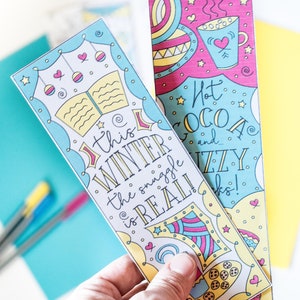 this
WINTER
the snuggle
is REAL!
Hot
COCOA
and